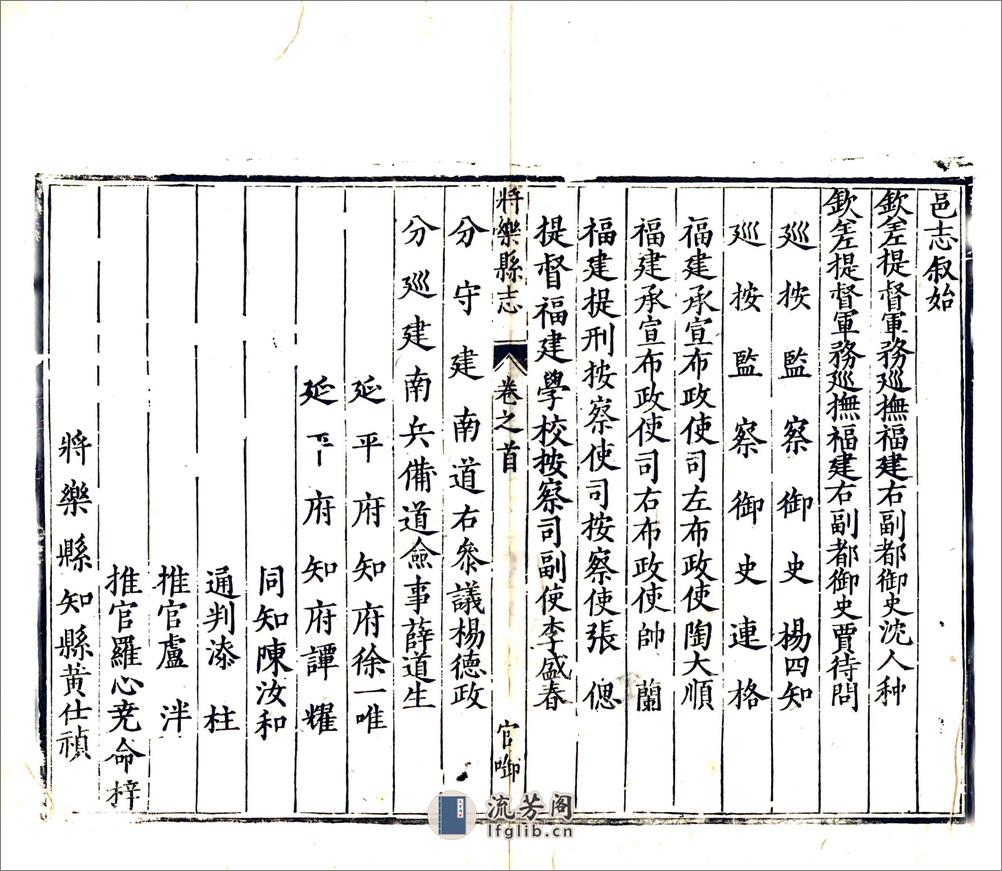 邑志叙始
欽差提督軍務廵撫福建右副都御史沈人种
欽差提督軍務廵撫福建右副都御史賈待問
廵按監察御史楊四知
廵按監察御史連格
福建承宣布政使司左布政使陶大順
福建承宣布政使司右布政使帥蘭
福建提刑按察使司按察使張偲
提督福建學校按察司副使李盛春
將樂縣志 卷之首 官啣
分守建南道右叅議楊德政
分廵建南兵備道僉事薛道生
延平府知府徐一唯
延平府知府譚耀
同知陳汝和
通判漆柱
推官盧泮
推官羅心尭命梓
將樂縣知縣黄仕禎
流芳阁
lfglib.cn